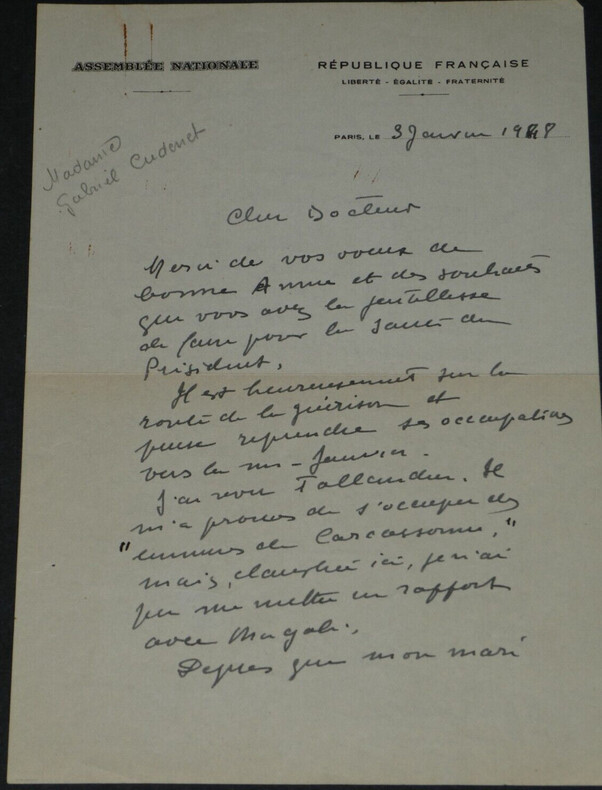 ASSEMBLÉE NATIONALE
RÉPUBLIQUE FRANÇAISE
LIBERTÉ - ÉGALITÉ - FRATERNITÉ
PARIS, LE 3 Janvier 1948
Madame
Gabriel Cudenet
Cher Docteur
Merci de vos voeux de
bonne Annee et des souhaits
que vous avez la gentillesse
de faire pour la santé du
Président.
Il est heureusement sur la
route de la guérison et
pense reprendre ses occupations
vers la mi-Janvier.
J'ai revu Tallandier. Il
m'a promis de s'occuper des
"ennuis de Carcassonne,"
mais, ici, je n'ai
pu me mettre en rapport
avec Magali.
Depuis que mon mari